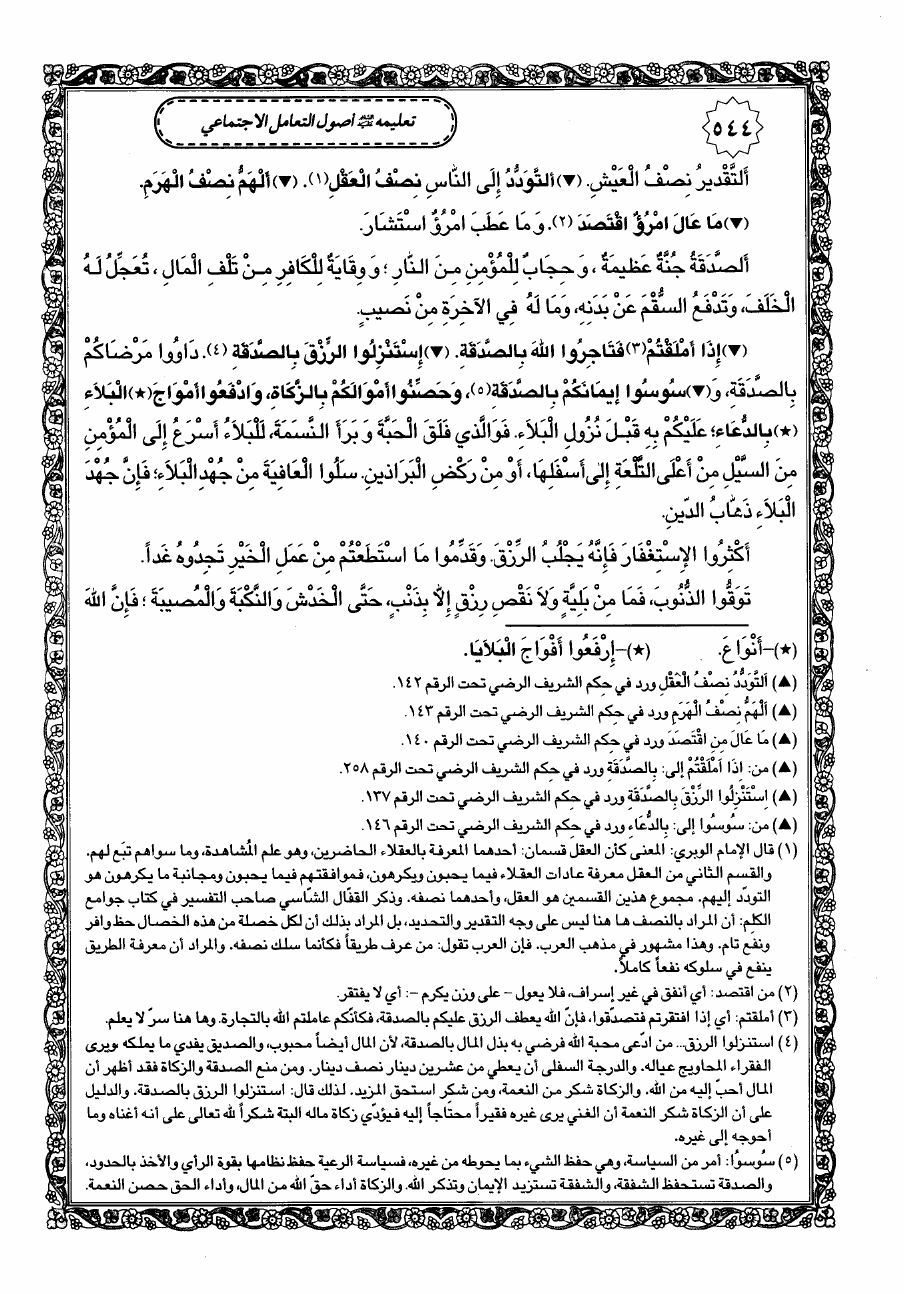 ٥٤٤
تعليمه ﷺ أصول التعامل الاجتماعي
اَلتَّقْدِيرُ نِصْفُ الْعَيْشِ. (▼) اَلتَّوَدُّدُ إِلَى النَّاسِ نِصْفُ الْعَقْلِ(١). (▼) اَلْهَمُّ نِصْفُ الْهَرَمِ.
(▼) مَا عَالَ امْرُؤٌ اقْتَصَدَ (٢). وَ مَا عَطَبَ امْرُؤٌ اسْتَشَارَ.
اَلصَّدَقَةُ جُنَّةٌ عَظِيمَةٌ ، وَ حِجَابٌ لِلْمُؤْمِنِ مِنَ النَّارِ ؛ وَ وِقَايَةٌ لِلْكَافِرِ مِنْ تَلَفِ الْمَالِ ، تُعَجِّلُ لَهُ
الْخَلَفَ، وَتَدْفَعُ السُّقْمَ عَنْ بَدَنِهِ، وَمَا لَهُ فِي الآخِرَةِ مِنْ نَصِيبٍ.
(▼) إِذَا أَمْلَقْتُمْ(٣) فَتَاجِرُوا اللهَ بِالصَّدَقَةِ. (▼) إِسْتَنْزِلُوا الرِّزْقَ بِالصَّدَقَةِ (٤). دَاوُوا مَرْضَاكُمْ
بِالصَّدَقَةِ، وَ(▼) سُوسُوا إِيمَانَكُمْ بِالصَّدَقَةِ(٥)، وَحَصِّنُوا أَمْوَالَكُمْ بِالزَّكَاةِ، وَادْفَعُوا أَمْوَاجَ(★) الْبَلاَءِ
(★) بِالدُّعَاءِ؛ عَلَيْكُمْ بِهِ قَبْلَ نُزُولِ الْبَلاَءِ. فَوَالَّذِي فَلَقَ الْحَبَّةَ وَ بَرَأَ النَّسَمَةَ، لَلْبَلاَءُ أَسْرَعُ إِلَى الْمُؤْمِنِ
مِنَ السَّيْلِ مِنْ أَعْلَى التَّلْعَةِ إِلَى أَسْفَلِهَا، أَوْ مِنْ رَكْضِ الْبَرَاذِينِ. سَلُوا الْعَافِيَةَ مِنْ جُهْدِ الْبَلاَءِ؛ فَإِنَّ جُهْدَ
الْبَلاَءِ ذَهَابُ الدِّينِ.
أَكْثِرُوا الاِسْتِغْفَارَ فَإِنَّهُ يَجْلُبُ الرِّزْقَ. وَقَدِّمُوا مَا اسْتَطَعْتُمْ مِنْ عَمَلِ الْخَيْرِ تَجِدُوهُ غَداً.
تَوَقُّوا الذُّنُوبَ، فَمَا مِنْ بَلِيَّةٍ وَلاَ نَقْصِ رِزْقٍ إِلاَّ بِذَنْبٍ، حَتَّى الْخَدْشَ وَالنَّكْبَةَ وَالْمُصِيبَةَ ؛ فَإِنَّ اللهَ
(★)-أَنْوَاعَ. (★)-إِرْفَعُوا أَفْوَاجَ الْبَلاَيَا.
(▲) اَلتَّوَدُّدُ نِصْفُ الْعَقْلِ ورد في حكم الشريف الرضي تحت الرقم ١٤٢.
(▲) اَلْهَمُّ نِصْفُ الْهَرَمِ ورد في حكم الشريف الرضي تحت الرقم ١٤٣.
(▲) مَا عَالَ مِن اقْتَصَدَ ورد في حكم الشريف الرضي تحت الرقم ١٤٠.
(▲) من: إِذَا أَمْلَقْتُمْ إلى: بِالصَّدَقَةِ ورد في حكم الشريف الرضي تحت الرقم ٢٥٨.
(▲) اِسْتَنْزِلُوا الرِّزْقَ بِالصَّدَقَةِ ورد في حكم الشريف الرضي تحت الرقم ١٣٧.
(▲) من: سُوسُوا إلى: بِالدُّعَاءِ ورد في حكم الشريف الرضي تحت الرقم ١٤٦.
(١) قال الإمام الوبري: المعنى كأن العقل قسمان: أحدهما المعرفة بالعقلاء الحاضرين، وهو علم المُشاهدة، وما سواهم تبَع لهم.
والقسم الثاني من العقل معرفة عادات العقلاء فيما يحبون ويكرهون، فموافقتهم فيما يحبون ومجانبة ما يكرهون هو
التودّد إليهم. مجموع هذين القسمين هو العقل، وأحدهما نصفه. وذكر القفّال الشّاسي صاحب التفسير في كتاب جوامع
الكلِم: أن المراد بالنصف ها هنا ليس على وجه التقدير والتحديد، بل المراد بذلك أن لكل خصلة من هذه الخصال حظ وافر
ونفع تام. وهذا مشهور في مذهب العرب. فإن العرب تقول: من عرف طريقاً فكأنما سلك نصفه. والمراد أن معرفة الطريق
ينفع في سلوكه نفعاً كاملاً.
(٢) من اقتصد: أي أنفق في غير إسراف، فلا يعول - على وزن يكرم -: أي لا يفتقر.
(٣) أملقتم: أي إذا افتقرتم فتصدّقوا، فإنّ الله يعطف الرزق عليكم بالصدقة، فكأنّكم عاملتم الله بالتجارة. وها هنا سرّ لا يعلم.
(٤) استنزلوا الرزق... من ادّعى محبة الله فرضي به بذل المال بالصدقة، لأن المال أيضاً محبوب، والصديق يفدي ما يملكه ،ويرى
الفقراء المحاويج عياله. والدرجة السفلى أن يعطي من عشرين دينار نصف دينار. ومن منع الصدقة والزكاة فقد أظهر أن
المال أحبّ إليه من الله. والزكاة شكر من النعمة، ومن شكر استحق المزيد. لذلك قال: استنزلوا الرزق بالصدقة. والدليل
على أن الزكاة شكر النعمة أن الغني يرى غيره فقيراً محتاجاً إليه فيؤدّي زكاة ماله البتة شكراً لله تعالى على أنه أغناه وما
أحوجه إلى غيره.
(٥) سُوسوُا: أمر من السياسة، وهي حفظ الشيء بما يحوطه من غيره، فسياسة الرعية حفظ نظامها بقوة الرأي والأخذ بالحدود،
والصدقة تستحفظ الشفقة، والشفقة تستزيد الإيمان وتذكر الله. والزكاة أداء حقّ الله من المال، وأداء الحق حصن النعمة.